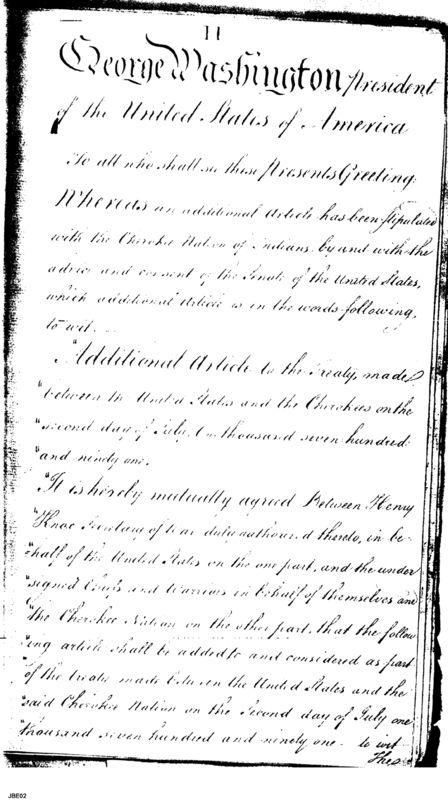 11
George Washington President
of the United States of America
To all who shall see these Presents Greeting.
Whereas an additional Article has been stipulated
with the Cherokee Nation of Indians by and with the
advice and consent of the Senate of the United States,
which additional Article is in the words following,
to wit.
"Additional Article to the Treaty, made
"between the United States and the Cherokees on the
"second day of July, One thousand seven hundred
"and ninety one.
"It is hereby mutually agreed Between Henry
"Knox Secretary of War duly authorized thereto, in be-
"half of the United States on the one part, and the under
"signed Chiefs and Warriors in behalf of themselves and
"the Cherokee Nation on the other part, that the follow
"ing article shall be added to and considered as part
"of the treaty made between the United States and the
"said Cherokee Nation on the Second day of July one
"thousand seven hundred and ninety one - to wit
The
JBE02